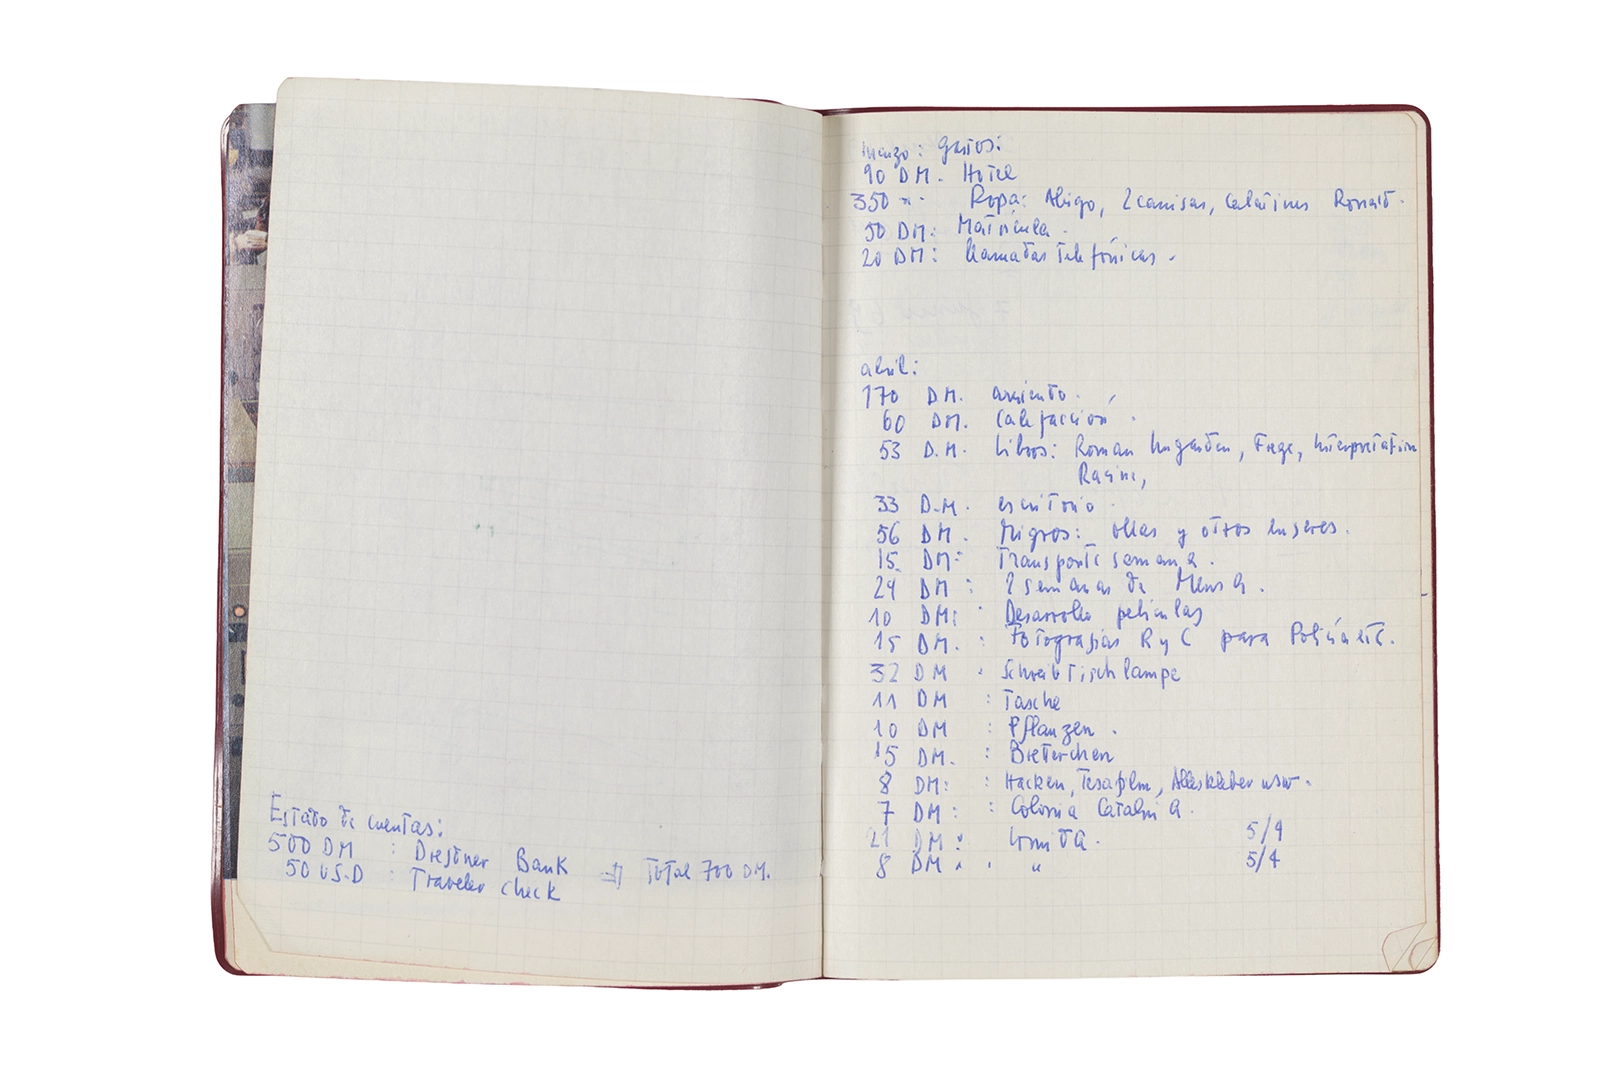 Estado de cuentas:
500 DM : Dresdner Bank ⇒ Total 700 DM.
50 US.D : Traveler check
marzo: gastos:
90 DM. Hotel
350 " . Ropa: Abrigo, 2 camisas, calcetines Ronald.
50 DM: Matrícula.
20 DM: llamadas telefónicas.
abril:
170 DM. arriendo.
60 DM. Calefacción.
53 D.M. Libros: Roman Ingarden, Frege, Interpretation
Racine,
33 D.M. escritorio.
56 DM. Migros: ollas y otros enseres.
15 DM: Transporte semana.
24 DM: 2 semanas de Mensa.
10 DM: Desarrollo películas
15 DM. : Fotografías R y C para
32 DM : Schreibtischlampe
11 DM : Tasche
10 DM : Pflanzen.
15 DM. : Bretterchen
8 DM: : Hacken, Tesafilm, Alleskleber usw.
7 DM: : Colonia Catalina.
21 DM: Comida. 5/4
8 DM. : " 5/4